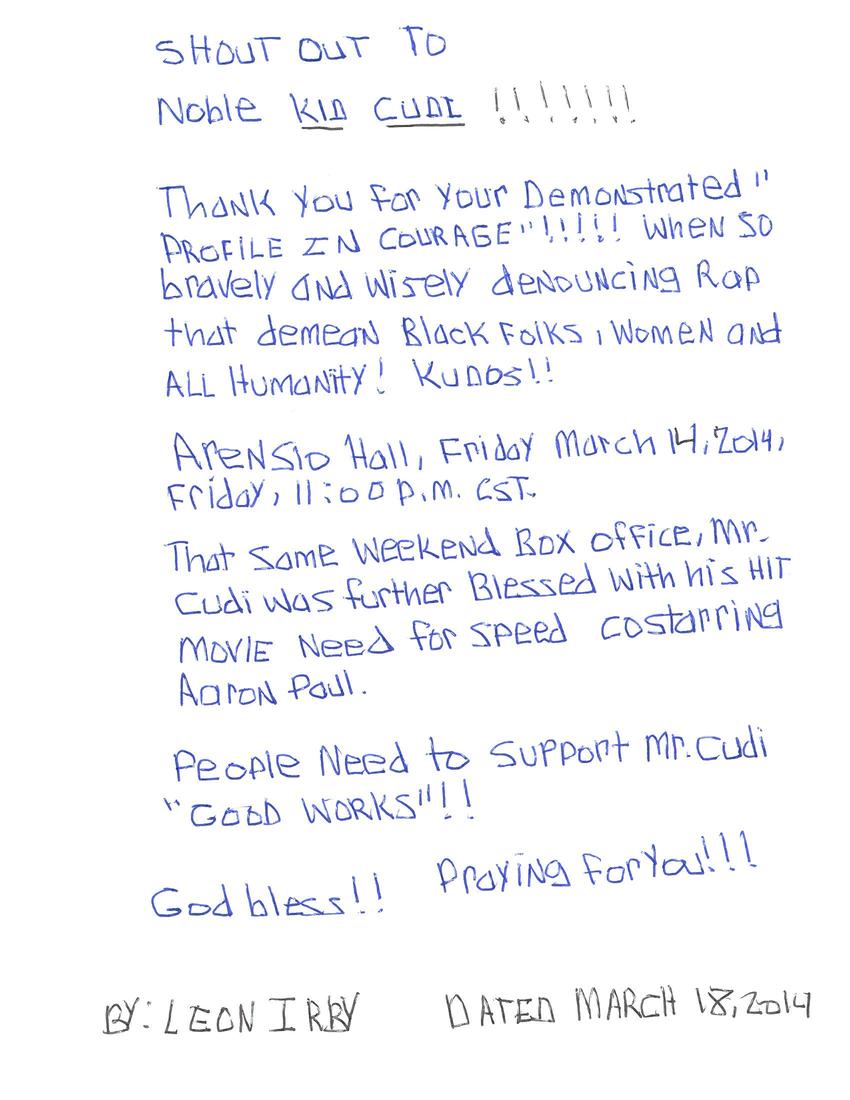 SHOUT OUT TO
Noble KID CUDI !!!!!!!
Thank You for Your Demonstrated "
PROFILE IN COURAGE"!!!!! When SO
bravely and wisely denouncing Rap
that demean Black Folks, Women and
ALL Humanity! Kudos!!
Arensio Hall, Friday March 14, 2014,
Friday, 11:00 p.m. CST.
That same weekend Box office, Mr.
Cudi was further Blessed with his HIT
MOVIE Need for Speed costarring
Aaron Paul.
People Need to Support Mr. Cudi
"GOOD WORKS"!!
God bless!! Praying for You!!!
BY: LEON IRBY DATED MARCH 18, 2014